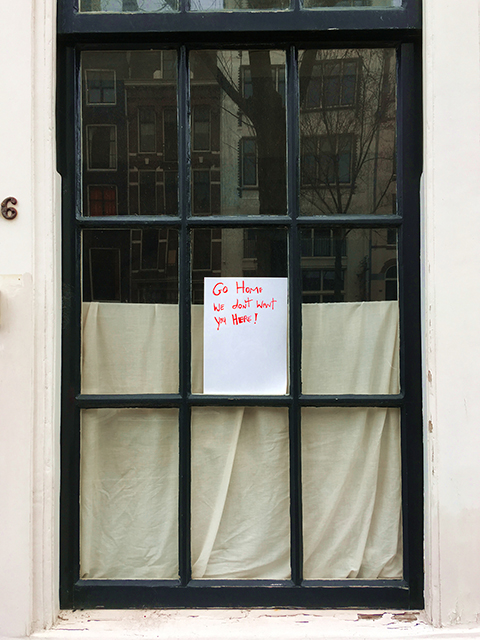 6
Go Home
We don't want
you Here!